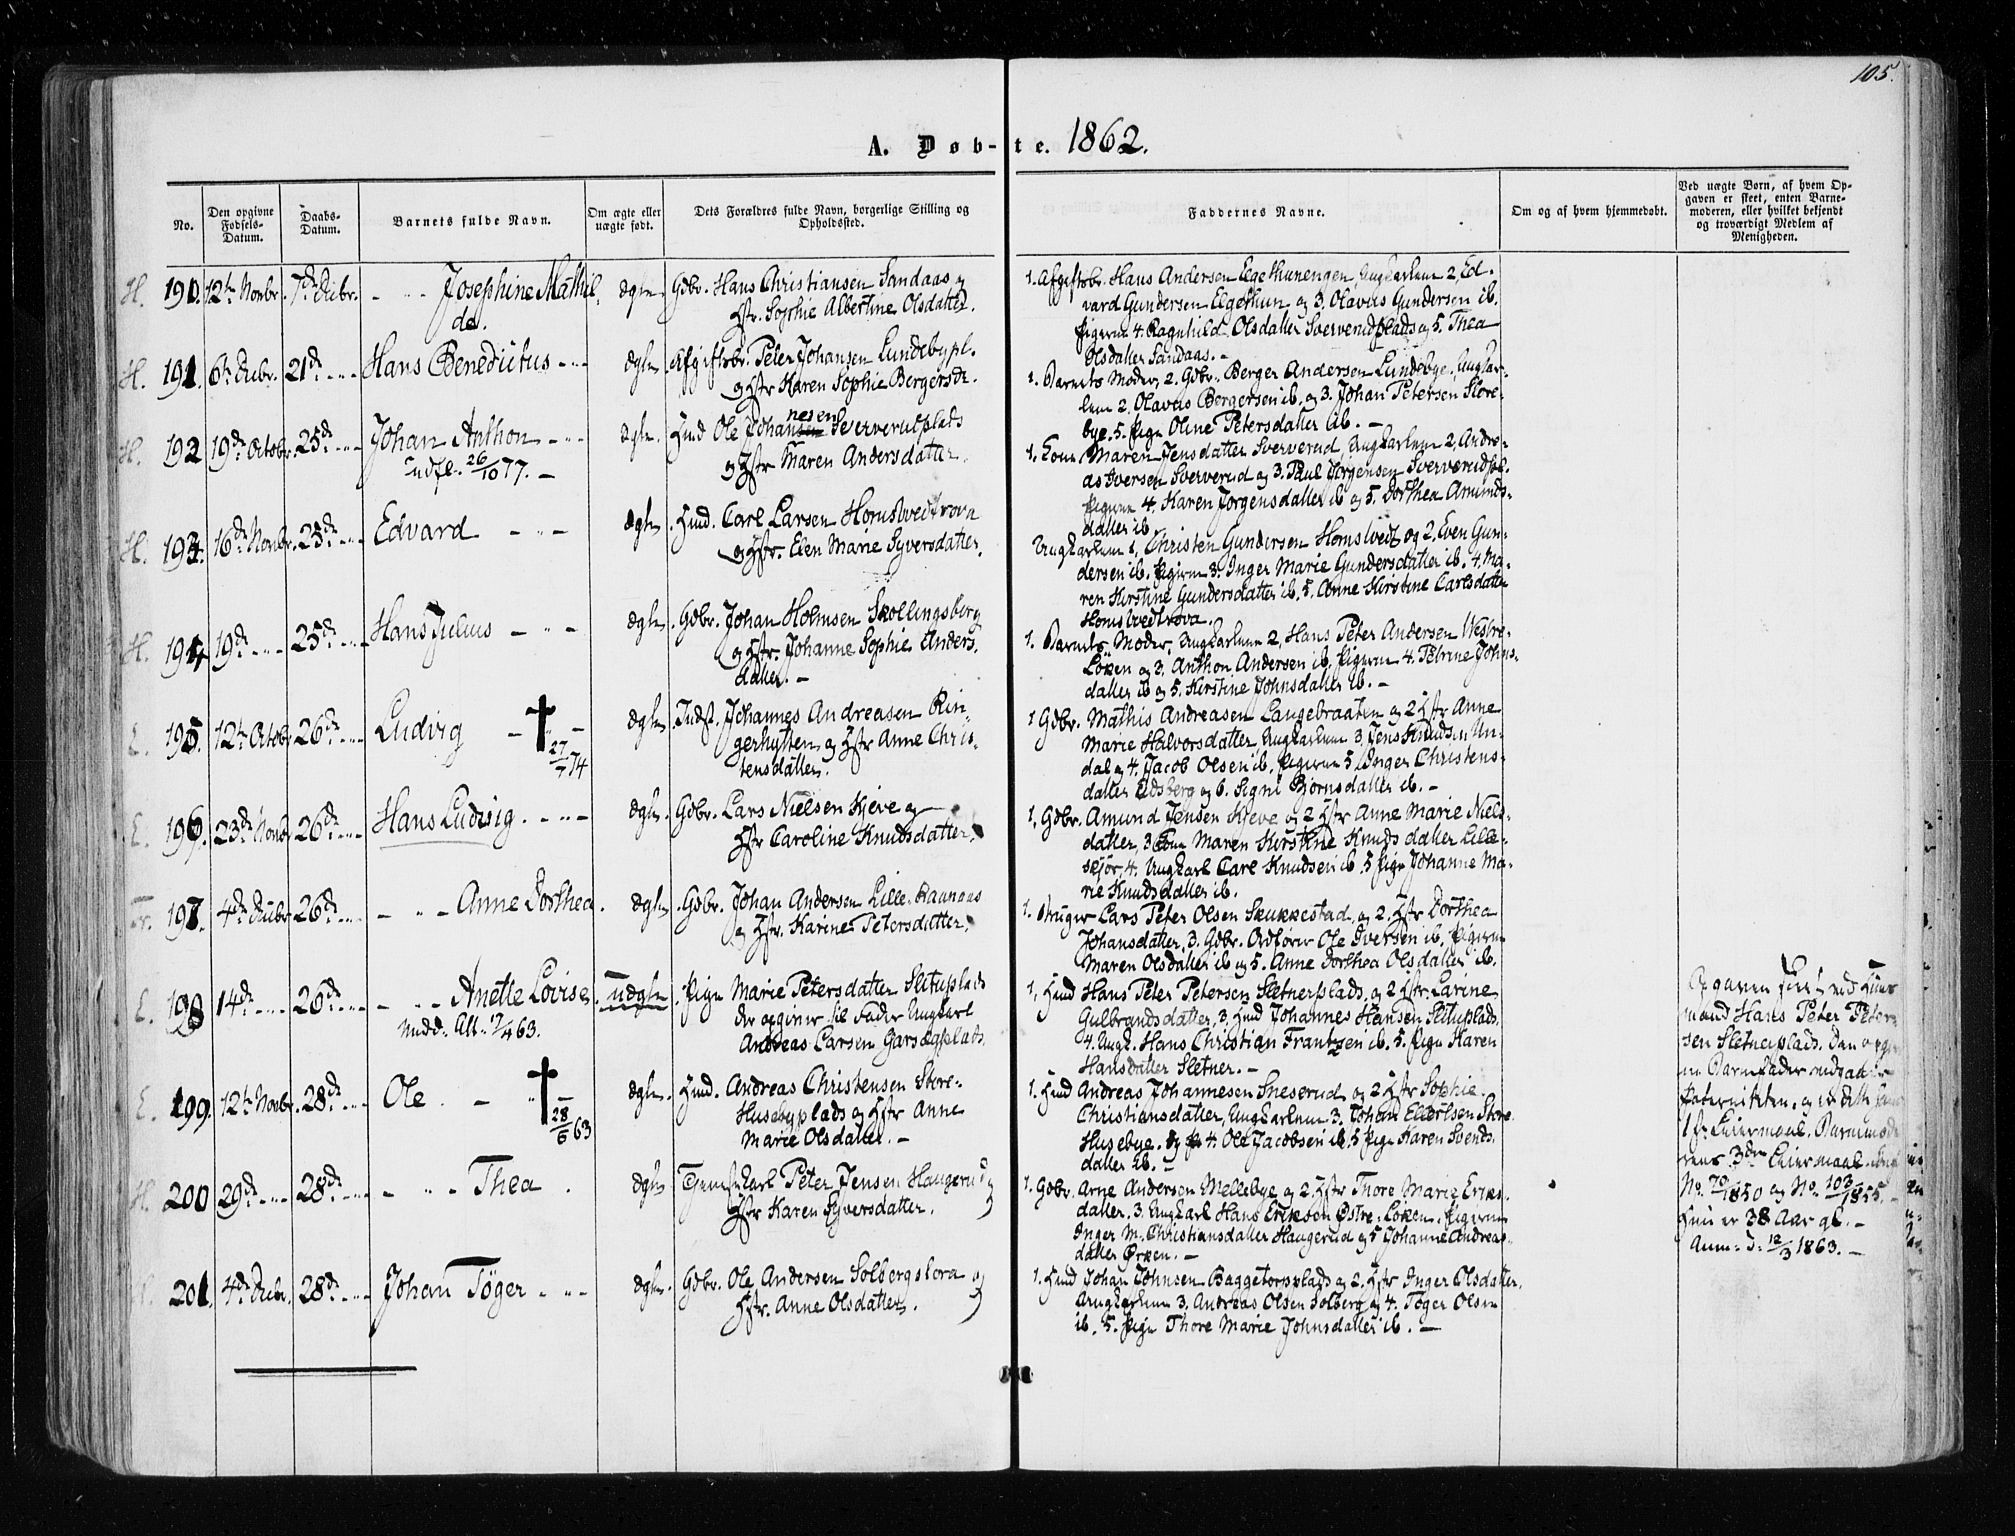 105.
A. Døb-te. 1862.
No.
Den opgivne Fødsels-Datum.
Daabs-Datum.
Barnets fulde Navn.
Om ægte eller uægte født.
Dets Forældres fulde Navn, borgerlige Stilling og Opholdssted.
Faddernes Navne.
Om og af hvem hjemmedøbt.
Ved uægte Børn, af hvem Opgaven er skeet, enten Barnemoderen, eller hvilket bekjendt og troværdigt Medlem af Menigheden.
H. 190. 12te Novbr. 7de Decbr. - " - Josephine Mathil-
de.
ægte. Gdbr. Hans Christiansen Sandaas og
Hstr. Sophie Albertine Olsdatter.
1. Afgiftsbr. Hans Andersen Ungkarlene 2, Ed-
vard Gundersen og 3. Olavus Gundersen ib.
Pigerne 4. Ragnhild Olsdatter og 5. Thea
Olsdatter Sandaas. -
H. 191. 6te Decbr. 21de - " - Hans Benedictus - " -
ægte. Afgiftsbr. Peter Johansen Lundebypl.
og Hstr Karen Sophie Bergersdr.
1. Barnets Moder, 2. Gdbr. Berger Andersen Lundebye, Ungkar-
lene 2. Olavus Bergersen ib. og 3. Johan Petersen Store-
bye. 5. Pige Oline Petersdatter ib. -
H. 192 19de Octobr. 25de - " - Johan Anthon - " -
udfl. 26/10 77. -
ægte. Hmd Ole Johannesen Sververudplads
og Hstr Maren Andersdatter
1. Kone Maren Jensdatter Sververud, Ungkarlene 2, Andre-
as Iversen Sververud og 3. Paul Jørgensen Sververudpl.
Pigerne 4. Karen Jørgensdatter ib og 5. Dorthea Amunds-
datter ib
H. 193. 16de Novbr. 25de - " - Edvard - " -
ægte. Hmd. Carl Larsen Hornslvedtrova
og Hstr. Elen Marie Syversdatter.
Ungkarlene 1, Christen Gundersen Hornslvedt og 2, Even Gun-
dersen ib. Pigerne 3. Inger Marie Gundersdatter ib. 4. Ma-
ren Kirstine Gundersdatter ib. 5. Anne Kirstine Carlsdatter
Hornslvedtrova.
H. 194 19de - " - 25de - " - Hans Julius - " -
ægte. Gdbr. Johan Holmsen Skollingsberg
og Hstr. Johanne Sophie Anders-
datter. -
1. Barnets Moder, Ungkarlene 2, Hans Peter Andersen Westre-
Løken og 3. Anthon Andersen ib. Pigerne 4. Petrine Johns-
datter ib og 5. Kirstine Johnsdatter ib. -
E. 195. 12te Octobr 26de - " - Ludvig - " -
27/7 74
ægte. Indst. Johannes Andreasen Rin-
gerhytten og Hstr Anne Chris-
tensdatter.
1 Gdbr. Mathis Andreasen Langebraaten og 2 Hstr Anne
Marie Halvorsdatter, Ungkarlene 3, Jens Knudsen Un-
dal og 4. Jacob Olsen ib. Pigerne 5 Inger Christens-
datter Edsberg og 6. Signi Bjørnsdatter ib. -
E. 196. 23de Novbr 26de - " - Hans Ludvig. - " -
ægte. Gdbr. Lars Nielsen Kjeve og
Hstr Caroline Knudsdatter.
1, Gdbr. Amund Jensen Kjeve og 2 Hstr Anne Marie Niels-
datter, 3 Kone Maren Kirstine Knudsdatter Lille-
skjør, 4. Ungkarl Carl Knudsen ib 5 Pige Johanne Ma-
rie Knudsdatter ib.
Tr. 197. 4de Decbr 26de - " - - " - Anne Dorthea.
ægte. Gdbr. Johan Andersen Lille Raanaas
og Hstr. Karine Petersdatter.
1. Bruger Lars Peter Olsen Skukkestad, og 2. Hstr Dorthea
Johansdatter, 3. Gdbr. Ordfører Ole Iversen ib, Pigerne
Maren Olsdatter ib og 5. Anne Dorthea Olsdatter ib.
E. 198 14de - " - 26de - " - - " - Anette Lovise.
Medd. Att. 17/4 63.
uægte. Pige Marie Petersdatter Slituplads
der opgiver til Fader Ungkarl
Andreas Larsen Garsegplads.
1, Hmd Hans Peter Petersen Sletnerplads, og 2 Hstr. Larine
Gulbrandsdatter, 3. Hmd Johannes Hansen Slituplads.
4. Ungk. Hans Christian Frantzen ib. 5. Pige Karen
Hansdatter Sletner. -
Opgaven skeet ved Huus-
mand Hans Peter Peter-
sen Sletnerplads. Den opgiv-
ne Barnefader
Paterniteten, og er dette hans
1ste Leiermaal, Barnemode-
rens 3die Leiermaal
No. 70/1850 og No. 103/1855. -
Hun er 38 Aar gl. -
Anm. d. 12/3 1863. -
E. 199. 12te Novbr. 28de - " - Ole. - " -
28/6 63
ægte. Hmd. Andreas Christensen Store-
Husebyplads og Hstr Anne
Marie Olsdatter. -
1. Hmd Andreas Johannesen Sneserud og 2 Hstr Sophie
Christiansdatter, Ungkarlene 3. Johan Ellefsen Store
Husebye. 4. Ole Jacobsen ib, 5 Pige Karen Svends-
datter ib. -
H. 200 29de - " - 28de - " - - " - Thea.
ægte Peter Jensen Haugerud og
Hstr Karen Syversdatter.
1. Gdbr. Arne Andersen Mellebye og 2. Hstr Thore Marie Eriks-
datter. 3. Ungkarl Hans Eriksen Østre-Løken. Pigerne
Inger M. Christiansdatter Haugerud og 5 Johanne Andreas-
datter Ørken. -
H. 201. 4de Decbr. 28de - " - Johan Tøger - " -
ægte. Gdbr. Ole Andersen Solbergstora og
Hstr. Anne Olsdatter.
1. Hmd Johan Johnsen Baggetorpplads og 2. Hstr Inger Olsdatter.
Ungkarlene 3. Andreas Olsen Solberg og 4. Tøger Olsen
ib. 5. Pige Thore Marie Johnsdatter ib. -